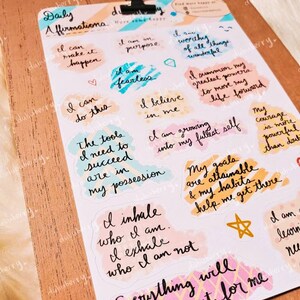 Daily
Affirmations
I can
make it
happen
I am on
purpose.
I am
worthy
of all
things
wonderful
I am
fearless
I summon my
greatest powers
to move my
life forward
I can
do this.
I believe
in me
My
courage
is more
powerful
than my
I am growing
into my fullest self
The tools
I need to
succeed
are in
my possession
My goals
are attainable
& my habits
help me get there
I inhale
who I am.
I exhale
who I am not
I am
Everything well
for me